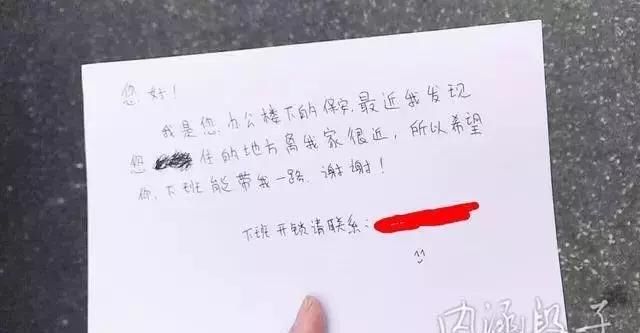 您好！
我是您办公楼下的保安,最近我发现
您住的地方离我家很近，所以希望
你，下班能带我一路，谢谢！
下班开锁请联系：
内涵段子